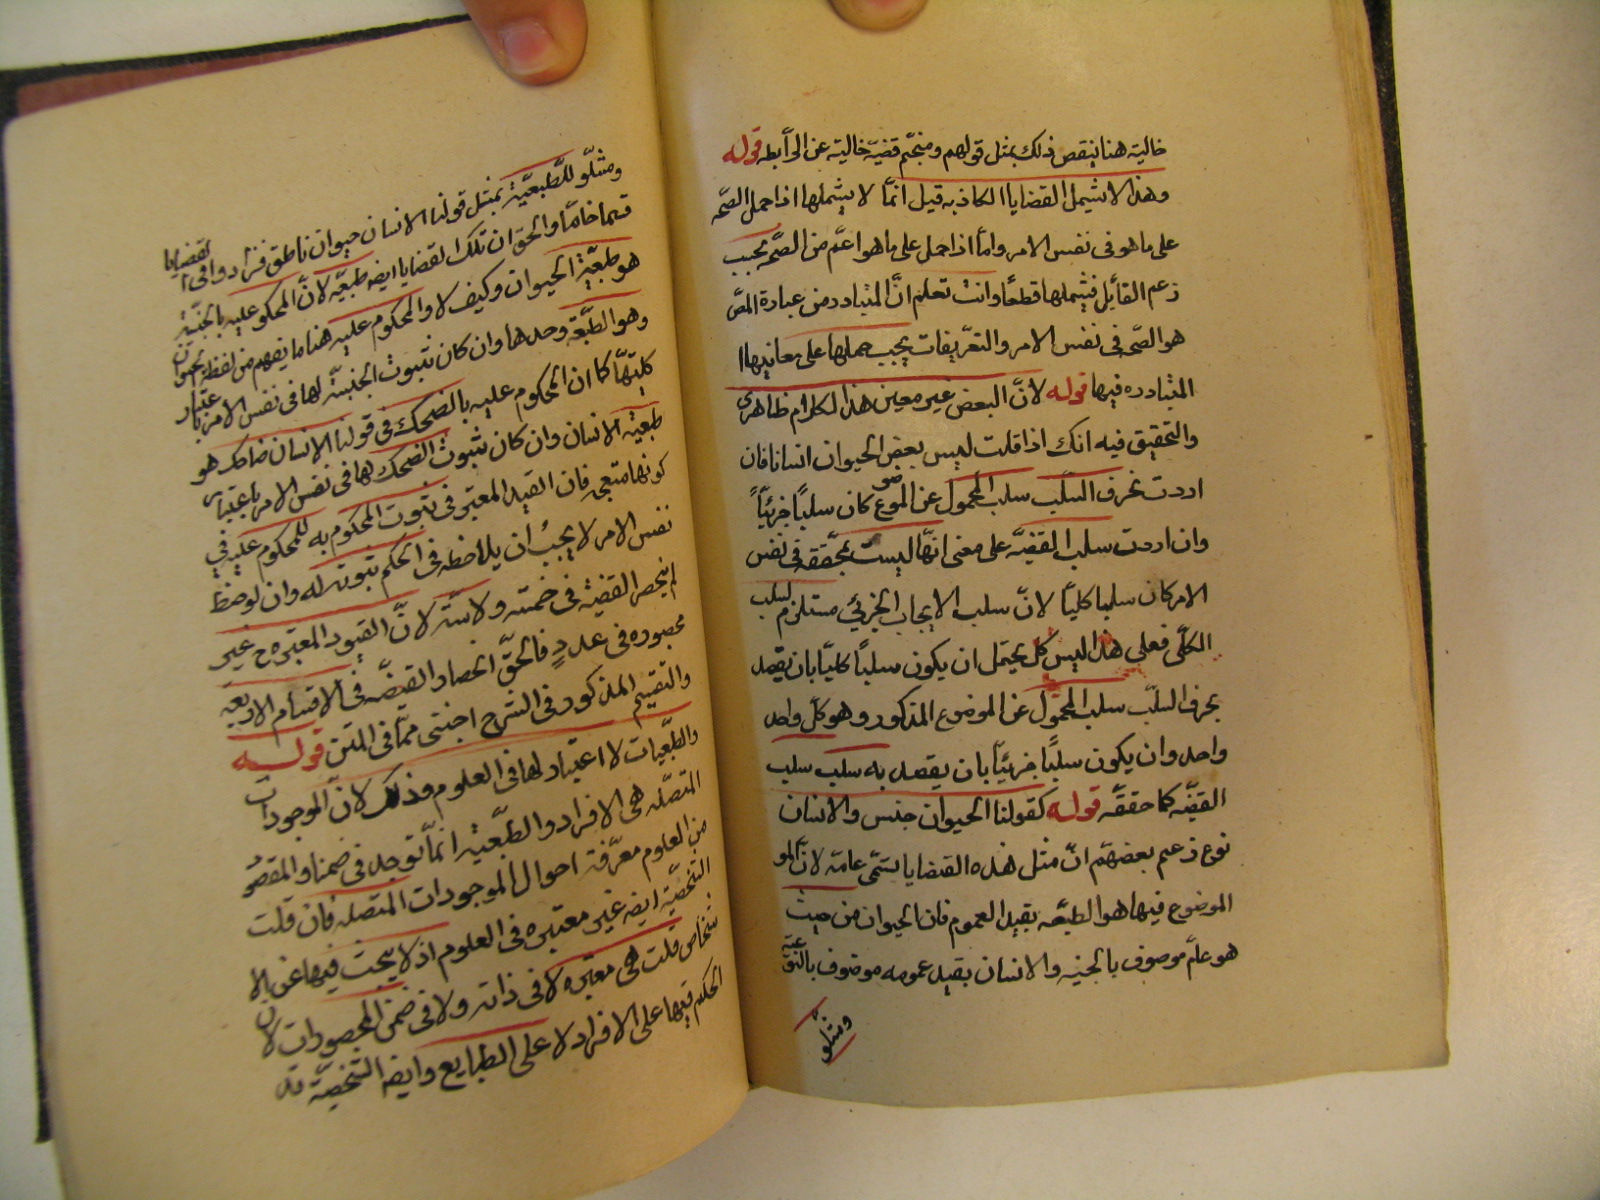 خالية هنا ينتقض ذلك بمثل قولهم ومنجم قضية خالية عن الرابطه قوله
وهذا لا يشمل القضايا الكاذبه قيل انما لا يشملها اذا حمل الصحه
على ما هو فى نفس الامر واما اذا حمل على ما هو اعم من الصحه بحسب
زعم القائل فيشملها قطعا وانت تعلم ان المتبادر من عبارة المص
هو الصحه فى نفس الامر والتعريفات يجب حملها على معانيها ا
المتبادره فيها قوله لان البعض غير معين هذا الكلام ظاهرى
والتحقيق فيه انك اذا قلت ليس بعض الحيوان انسانا فان
اردت بحرف السلب سلب المحمول عن الموضوع كان سلبا جزئيا
وان اردت سلب القضيه على معنى انها ليست بمحققه فى نفس
الامر كان سلبا كليا لان سلب الايجاب الجزئى مستلزم لسلب
الكلى فعلى هذا ليس كل يحتمل ان يكون سلبا كليا بان يقصد
بحرف السلب سلب المحمول عن الموضوع المذكور وهو كل واحد
واحد وان يكون سلبا جزئيا بان يقصد به سلب سلب
القضيه كما حققه قوله كقولنا الحيوان جنس والانسان
نوع زعم بعضهم ان مثل هذه القضايا يسمى عامه لان المو
الموضوع فيها هو الطبيعه بقيد العموم فان الحيوان من حيث
هو عام موصوف بالجنسيه والانسان بقيد عمومه موصوف بالنوعيه
ومثلو
ومثلو للطبعية بمثل قولنا الانسان حيوان ناطق فزادوا فى القضايا
قسما خامسا والحق ان تلك القضايا ايضه طبعيه لان المحكوم عليه بالجنسية
هو طبعية الحيوان وكيف لا والمحكوم عليه هنا ما يفهم من لفظه الحيوان
وهو الطبعة وحدها وان كان ثبوت الجنسية لها فى نفس الامر باعتبار
كليتها كما ان المحكوم عليه بالضحك فى قولنا الانسان ضاحك هو
طبعية الانسان وان كان ثبوت الضحك لها فى نفس الامر باعتبار
كونها متعجبه فان القيد المعتبر فى ثبوت المحكوم به للمحكوم عليه فى
نفس الامر لا يجب ان يلاحظه فى الحكم ثبوته له وان لوحظ
لم ينحصر القضية فى خمسته ولا ستة لان القيود المعتبره ح غير
محصوره فى عدد فالحق انحصار القضيه فى الاقسام الاربعه
والتقسيم المذكور فى الشرح اجنبى مما فى المتن قوله
والطبعيات لا اعتبار لها فى العلوم وذلك لان الموجودات
المتصله هى الافراد والطبعية انما توجد فى ضمنها والمقصود
من العلوم معرفة احوال الموجودات المتصله فان قلت
الشخصية ايضه غير معتبره فى العلوم اذ لا يبحث فيها عن الا
شخاص قلت هى معتبره لا فى ذاته ولا فى ضمن المحصورات لان
الحكم فيها على الافراد لا على الطبايع وايضه الشخصية قد